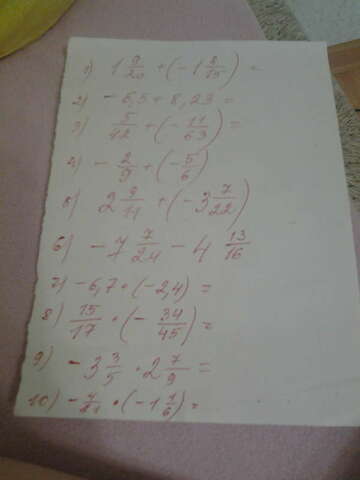 1) 1 9/20 + (- 1 8/15) =
2) - 6,5 + 8,23 =
3) 5/42 + (- 11/63) =
4) - 2/9 + (- 5/6)
5) 2 9/11 + (- 3 7/22)
6) - 7 7/24 - 4 13/16
7) - 6,7 · (- 2,4) =
8) 15/17 · (- 34/45) =
9) - 3 3/5 · 2 7/9 =
10) · (- 1 1/6) =